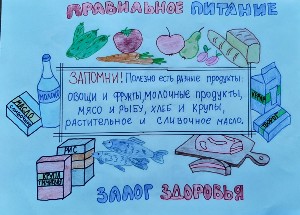 ПРАВИЛЬНОЕ ПИТАНИЕ
ЗАПОМНИ! Полезно есть разные продукты:
ОВОЩИ И ФРУКТЫ, МОЛОЧНЫЕ ПРОДУКТЫ,
МЯСО И РЫБУ, ХЛЕБ И КРУПЫ,
РАСТИТЕЛЬНОЕ И СЛИВОЧНОЕ МАСЛО.
МОЛОКО
МАСЛО
КРУПА
РИС
ЗАЛОГ ЗДОРОВЬЯ